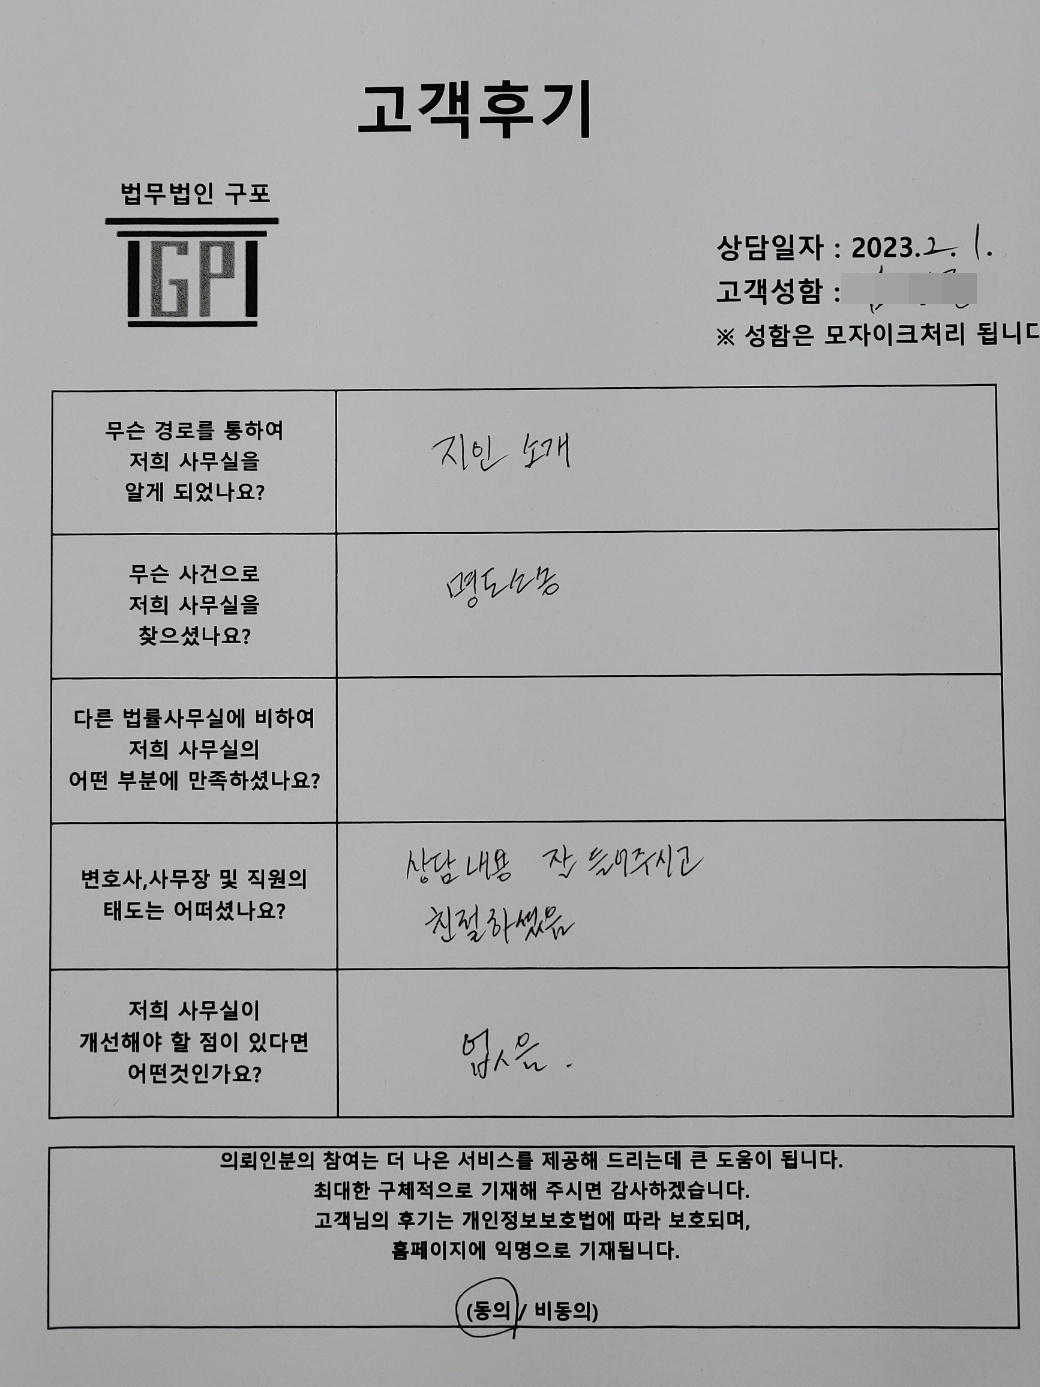 고객후기
법무법인 구포
GP
상담일자 : 2023.2.1.
고객성함 :
※ 성함은 모자이크처리 됩니다
무슨 경로를 통하여
저희 사무실을
알게 되었나요?
지인 소개
무슨 사건으로
저희 사무실을
찾으셨나요?
명도소송
다른 법률사무실에 비하여
저희 사무실의
어떤 부분에 만족하셨나요?
변호사,사무장 및 직원의
태도는 어떠셨나요?
상담 내용 잘 들어주시고
친절하셨음
저희 사무실이
개선해야 할 점이 있다면
어떤것인가요?
없음.
의뢰인분의 참여는 더 나은 서비스를 제공해 드리는데 큰 도움이 됩니다.
최대한 구체적으로 기재해 주시면 감사하겠습니다.
고객님의 후기는 개인정보보호법에 따라 보호되며,
홈페이지에 익명으로 기재됩니다.
(동의 / 비동의)